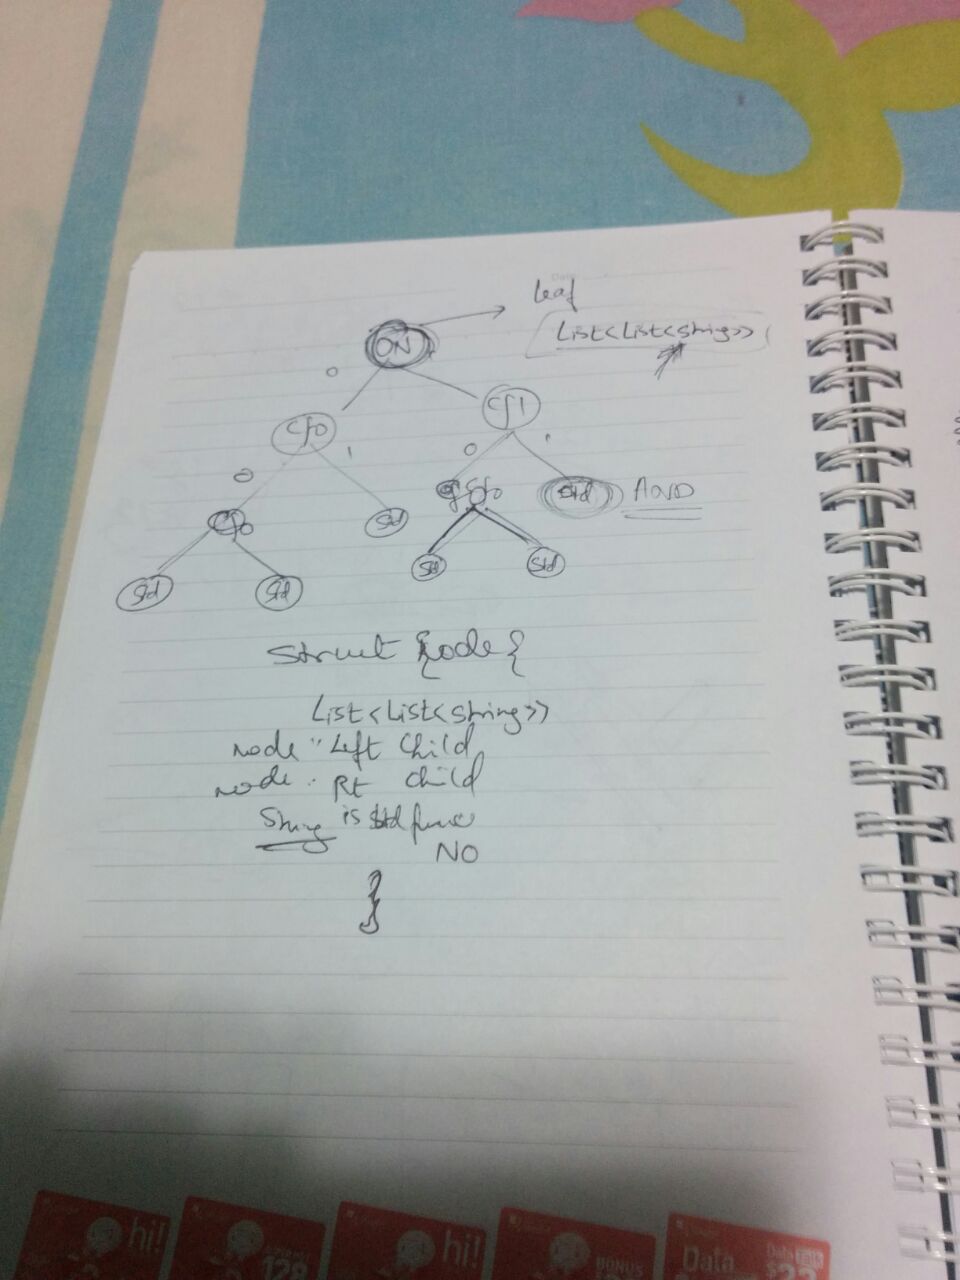 leaf
List<List<string>>
ON
0
Cf0
Cf1
0
1
0
1
Cf0
Std
Cf0
Std
AND
Std
Std
Std
Std
Struct node{
List<List<string>>
node: Left Child
node: Rt Child
String is Std func
NO
}
hi!
hi!
BONUS
Data
Data